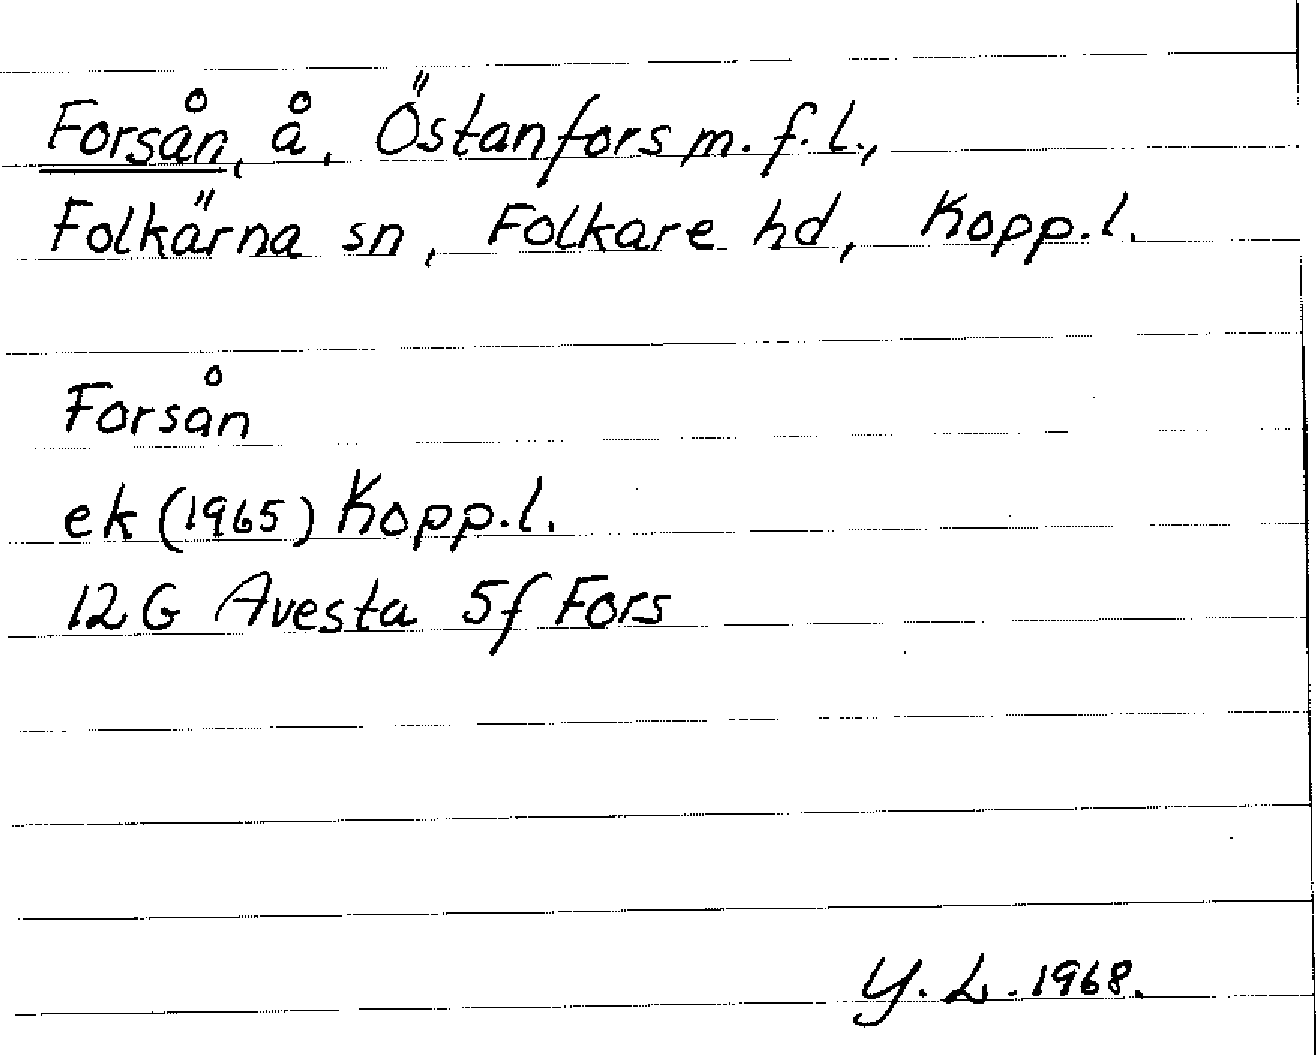 Forsån, å, Östanfors m.f.l.,
Folkärna sn, Folkare hd, Kopp.l.
Forsån
ek (1965) Kopp.l.
12G Avesta 5f Fors
Y.L. 1968.